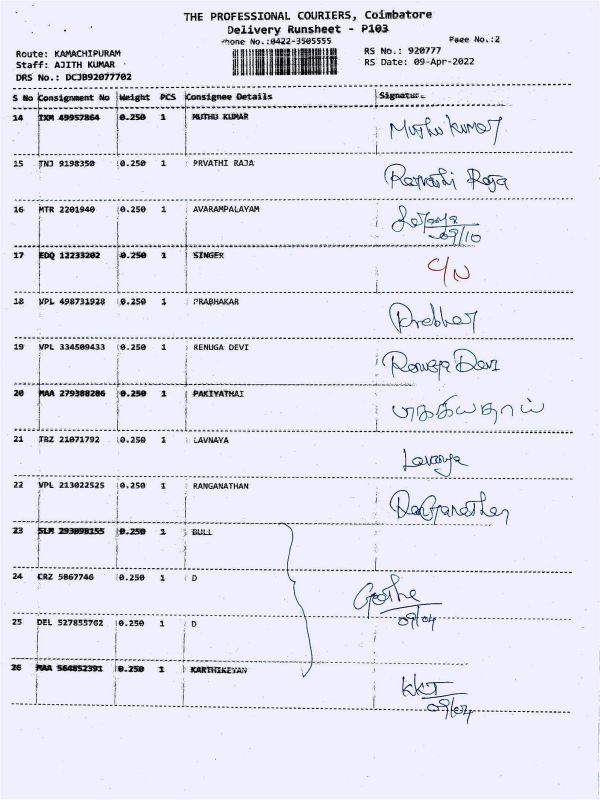 THE PROFESSIONAL COURIERS, Coimbatore
Delivery Runsheet - P103
Phone No.:0422-3505555 Page No.:2
Route: KAMACHIPURAM RS No.: 920777
Staff: AJITH KUMAR RS Date: 09-Apr-2022
DRS No.: DCJB92077702
S No Consignment No Weight PCS Consignee Details Signature
14 IXM 49957864 0.250 1 MUTHU KUMAR Muthu kumar
15 TNJ 9198350 0.250 1 PRVATHI RAJA Raja
16 MTR 2201940 0.250 1 AVARAMPALAYAM 09/10
17 EDQ 12233202 0.250 1 SINGER C/N
18 VPL 498731928 0.250 1 PRABHAKAR
19 VPL 334509433 0.250 1 RENUGA DEVI Devi
20 MAA 279388286 0.250 1 PAKIYATHAI பாக்கியதாய்
21 TRZ 21071792 0.250 1 LAVNAYA Lavanya
22 VPL 213022525 0.250 1 RANGANATHAN
23 SLM 293898155 0.250 1 BULL
24 CRZ 5867746 0.250 1 D
25 DEL 527855762 0.250 1 D 09/04
26 MAA 564852391 0.250 1 KARTHIKEYAN KKT
09/04